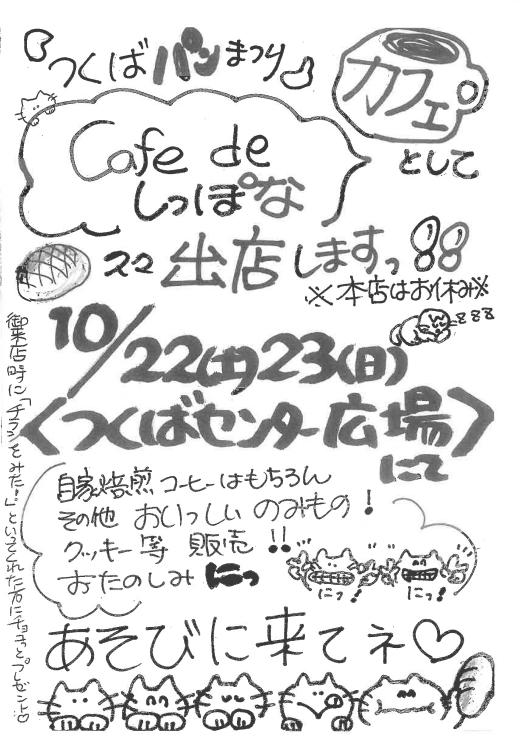 『つくばパンまつり』
カフェ
として
Cafe de
しっぽな
出店しますっ!!
※本店はお休み※
zzz
10/22(土)23(日)
<つくばセンター広場>
にて
自家焙煎コーヒーはもちろん
その他 おいっしい のみもの!
クッキー等 販売!!
おたのしみ にっ
にっ! にっ!
御来店時に「チラシをみた!」といってくれた方にチョコっとプレゼント♡
あそびに来てネ♡